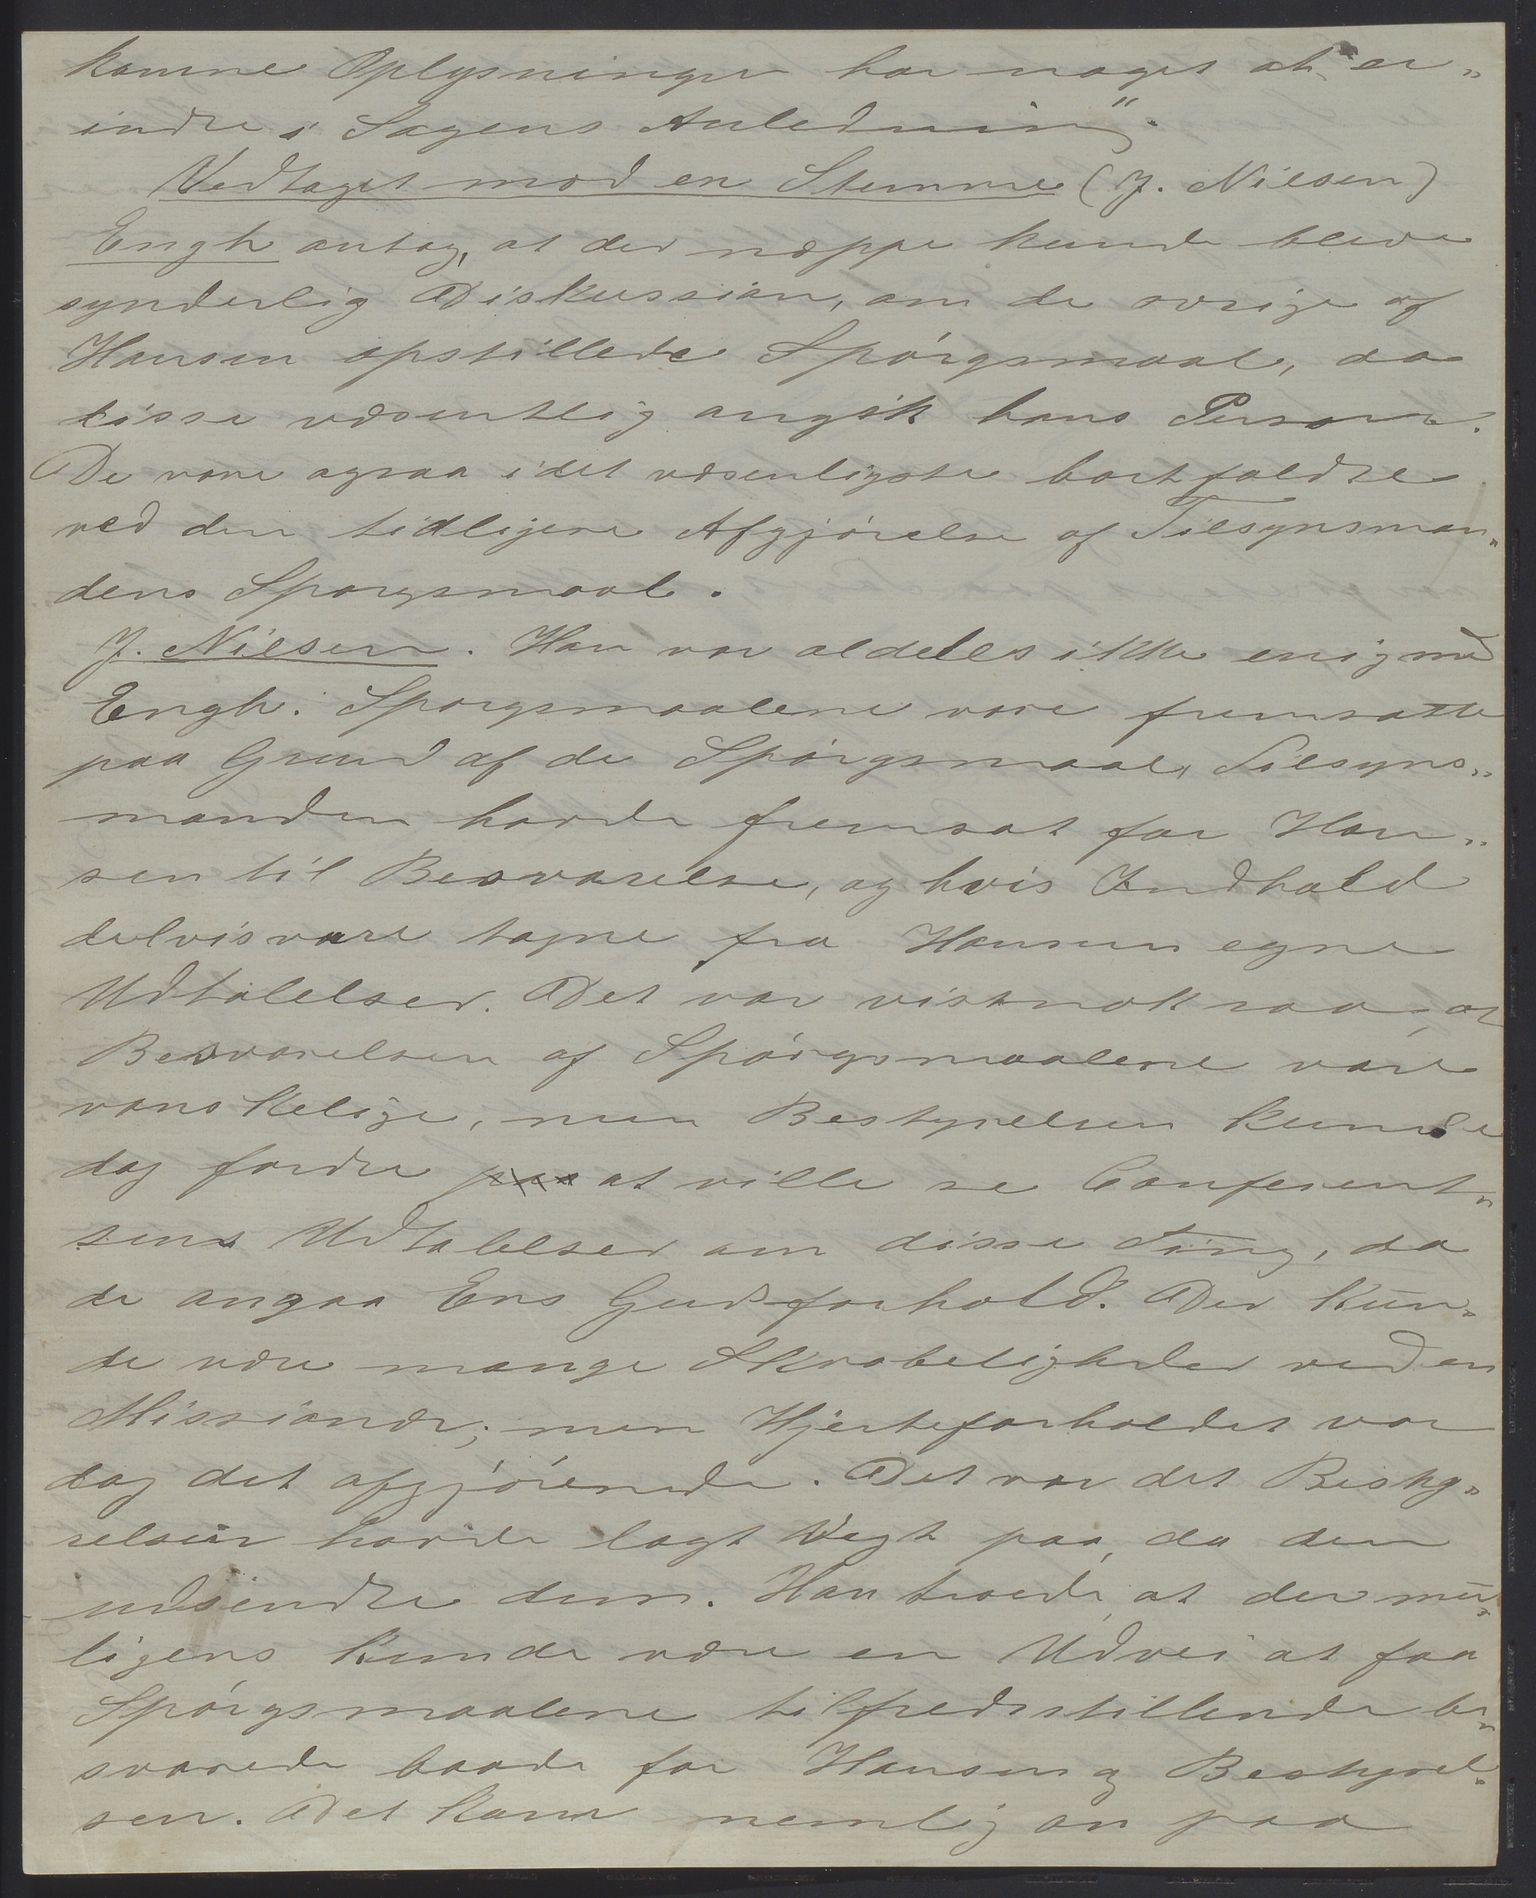 komne Oplysninger har noget at er„
indre i Sagens Anledning".
Vedtaget mod en Stemme (J. Nilsen)
Engh antog, at der neppe kunde blive
synderlig Diskussion, om de øvrige af
Hansen opstillede Spørgsmaal, da
disse væsentlig angik hans Person.
De vare ogsaa i det væsenligste bortfaldte
ved den tidligere Afgjørelse af Tilsynsman„
dens Spørgsmaal.
J. Nilsen. Han var aldeles ikke enig med
Engh. Spørgsmaalene vare fremsatte
paa Grund af de Spørgsmaal, Tilsyns„
manden havde fremsat for Han„
sen til Besvarelse, og hvis Indhold
delvis vare tagne fra Hansens egne
Udtalelser. Det var vistnok saa, at
Besvarelsen af Spørgsmaalene vare
vanskelige, men Bestyrelsen kunde
dog fordre paa at ville se Conferent„
sens Udtalelser om disse Ting, da
de angaa Ens Gudsforhold. Der kun„
de være mange Skrøbeligheder ved en
Missionær; men Hjerteforholdet var
dog det afgjørende. Det var det Besty„
relsen havde lagt Vægt paa, da den
udsendte dem. Han troede, at der mu„
ligens kunde være en Udvei at faa
Spørgsmaalene tilfredsstillende be„
svarede baade for Hansen og Bestyrel„
sen. Det kom nemlig an paa